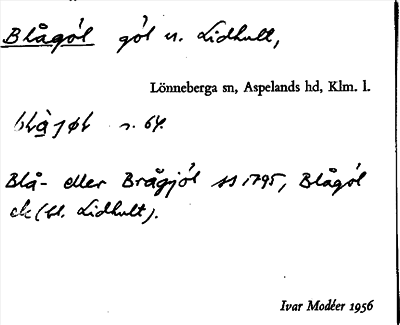 Blågöl göl n. Lidhult,
Lönneberga sn, Aspelands hd, Klm. l.
s. 64.
Blå- eller Brågjöl ss 1795, Blågöl
ek (bl. Lidhult).
Ivar Modéer 1956